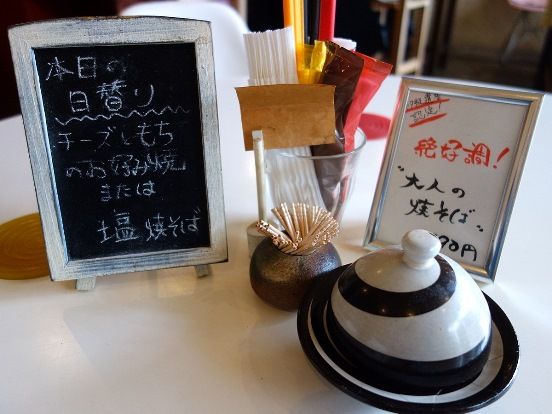 本日の
日替り
チーズともち
のお好み焼
または
塩焼そば
絶好調!
"大人の
焼そば"